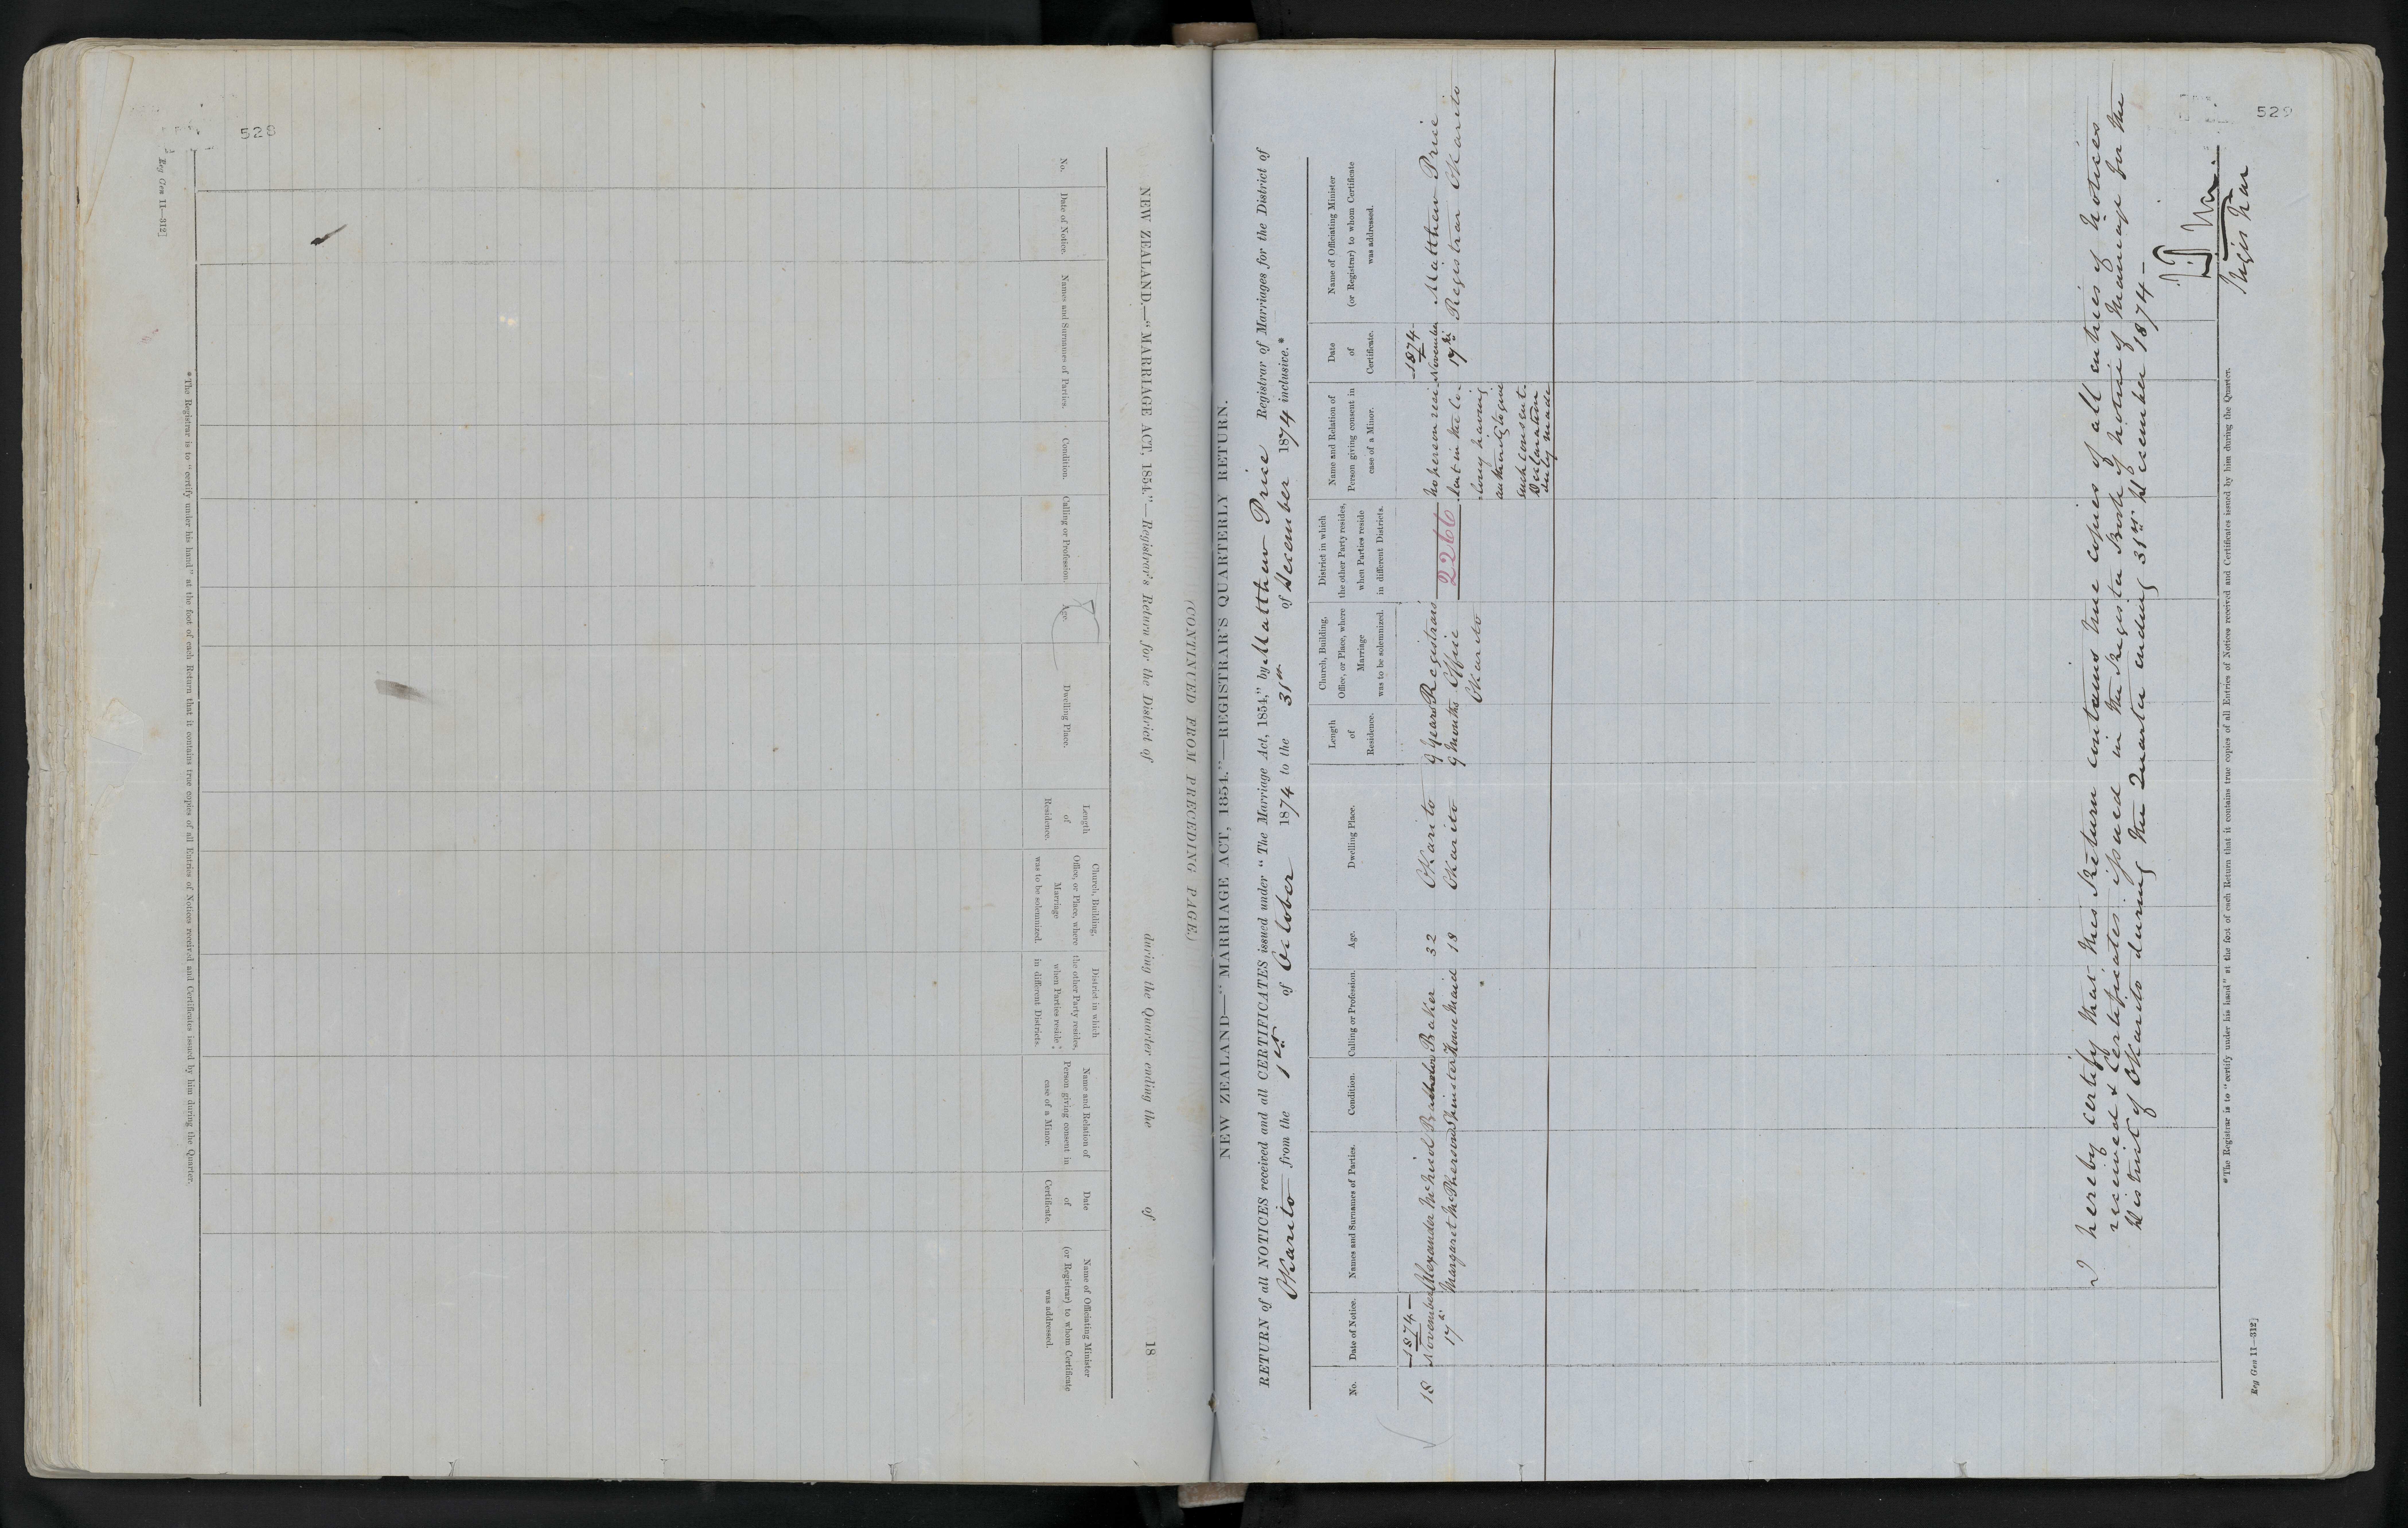 528
Reg Gen 11—312]
(CONTINUED FROM PRECEDING PAGE.)
NEW ZEALAND.—"MARRIAGE ACT, 1854."—Registrar's Return for the District of during the Quarter ending the of 18
No.
Date of Notice.
Names and Surnames of Parties.
Condition.
Calling or Profession.
Age.
Dwelling Place.
Length
of
Residence.
Church, Building,
Office, or Place, where
Marriage
was to be solemnized.
District in which
the other Party resides,
when Parties reside
in different Districts.
Name and Relation of
Person giving consent in
case of a Minor.
Date
of
Certificate.
Name of Officiating Minister
(or Registrar) to whom Certificate
was addressed.
*The Registrar is to "certify under his hand" at the foot of each Return that it contains true copies of all Entries of Notices received and Certificates issued by him during the Quarter.
529
NEW ZEALAND—"MARRIAGE ACT, 1854."—REGISTRAR'S QUARTERLY RETURN.
RETURN of all NOTICES received and all CERTIFICATES issued under "The Marriage Act, 1854," by Matthew Price Registrar of Marriages for the District of
Okarito from the 1st of October 1874 to the 31st of December 1874 inclusive.*
No.
Date of Notice.
Names and Surnames of Parties.
Condition.
Calling or Profession.
Age.
Dwelling Place.
Length
of
Residence.
Church, Building,
Office, or Place, where
Marriage
was to be solemnized.
District in which
the other Party resides,
when Parties reside
in different Districts.
Name and Relation of
Person giving consent in
case of a Minor.
Date
of
Certificate.
Name of Officiating Minister
(or Registrar) to whom Certificate
was addressed.
1874 1874
18 November Alexander McNeil Bachelor Baker 32 Okarito 9 Years Registrars 2266 No person resi- November Matthew Price
17th Margaret McPherson Spinster House Maid 18 Okarito 9 Months Office dent in the Co- 17th Registrar Okarito
Okarito lony having
authority to give
such consent
Declaration
duly made
I hereby certify that this Return contains true copies of all entries of Notices
received & Certificates issued in the Register Book of Notice of Marriage for the
District of Okarito during the Quarter ending 31st December 1874—
Registrar
*The Registrar is to "certify under his hand" at the foot of each Return that it contains true copies of all Entries of Notices received and Certificates issued by him during the Quarter.
Reg Gen 11—312]